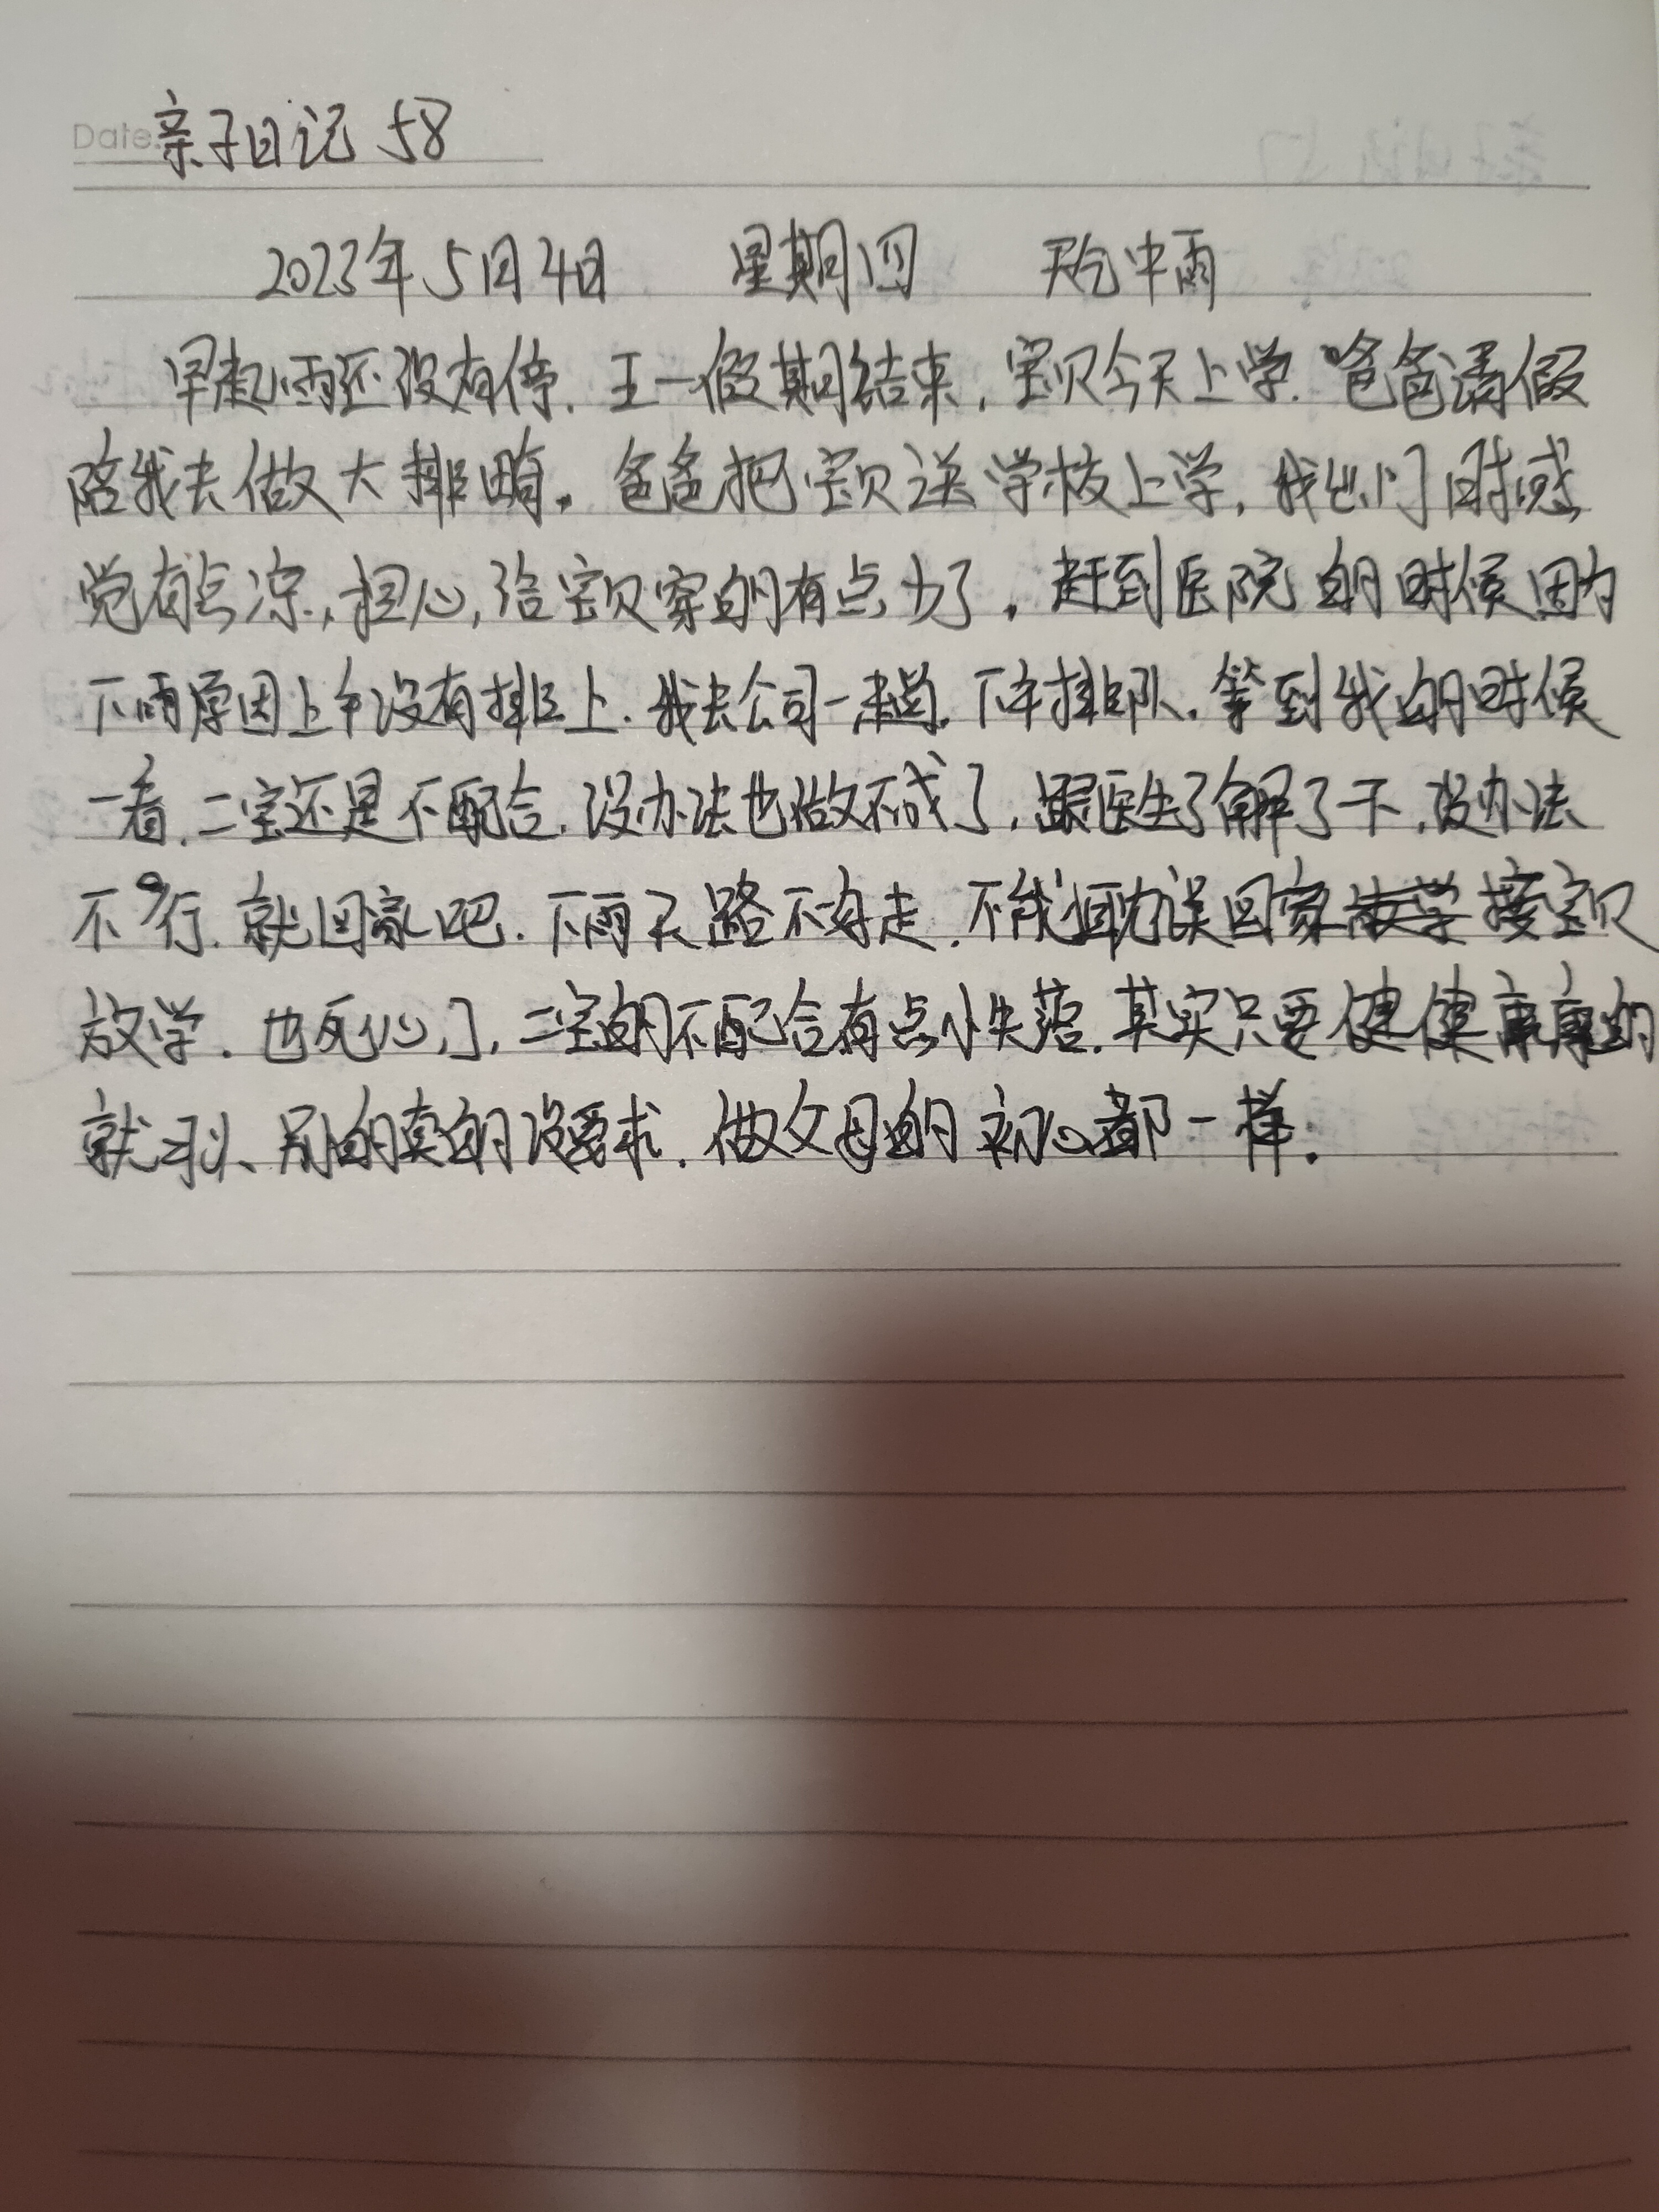 Date: 亲子日记 58
2023年5月4日 星期四 天气中雨
早起雨还没有停. 五一假期结束, 宝贝今天上学. 爸爸请假
陪我去做大排畸。爸爸把宝贝送学校上学, 我出门时感
觉有点凉, 担心, 给宝贝穿的有点少了, 赶到医院的时候因为
下雨原因上午没有排上. 我去公司一趟. 下午排队. 等到我的时候
一看. 二宝还是不配合. 没办法也做不成了, 跟医生了解了一下, 没办法
不行. 就回家吧. 下雨天路不好走. 不能耽误回家接宝贝
放学. 也死心了, 二宝的不配合有点小失落. 其实只要健健康康的
就可以、别的真的没要求. 做父母的初心都一样.